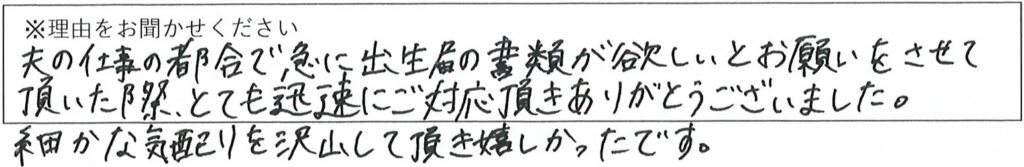 ※理由をお聞かせください
夫の仕事の都合で、急に出生届の書類が欲しいとお願いをさせて
頂いた際、とても迅速にご対応頂きありがとうございました。
細かな気配りを沢山して頂き嬉しかったです。